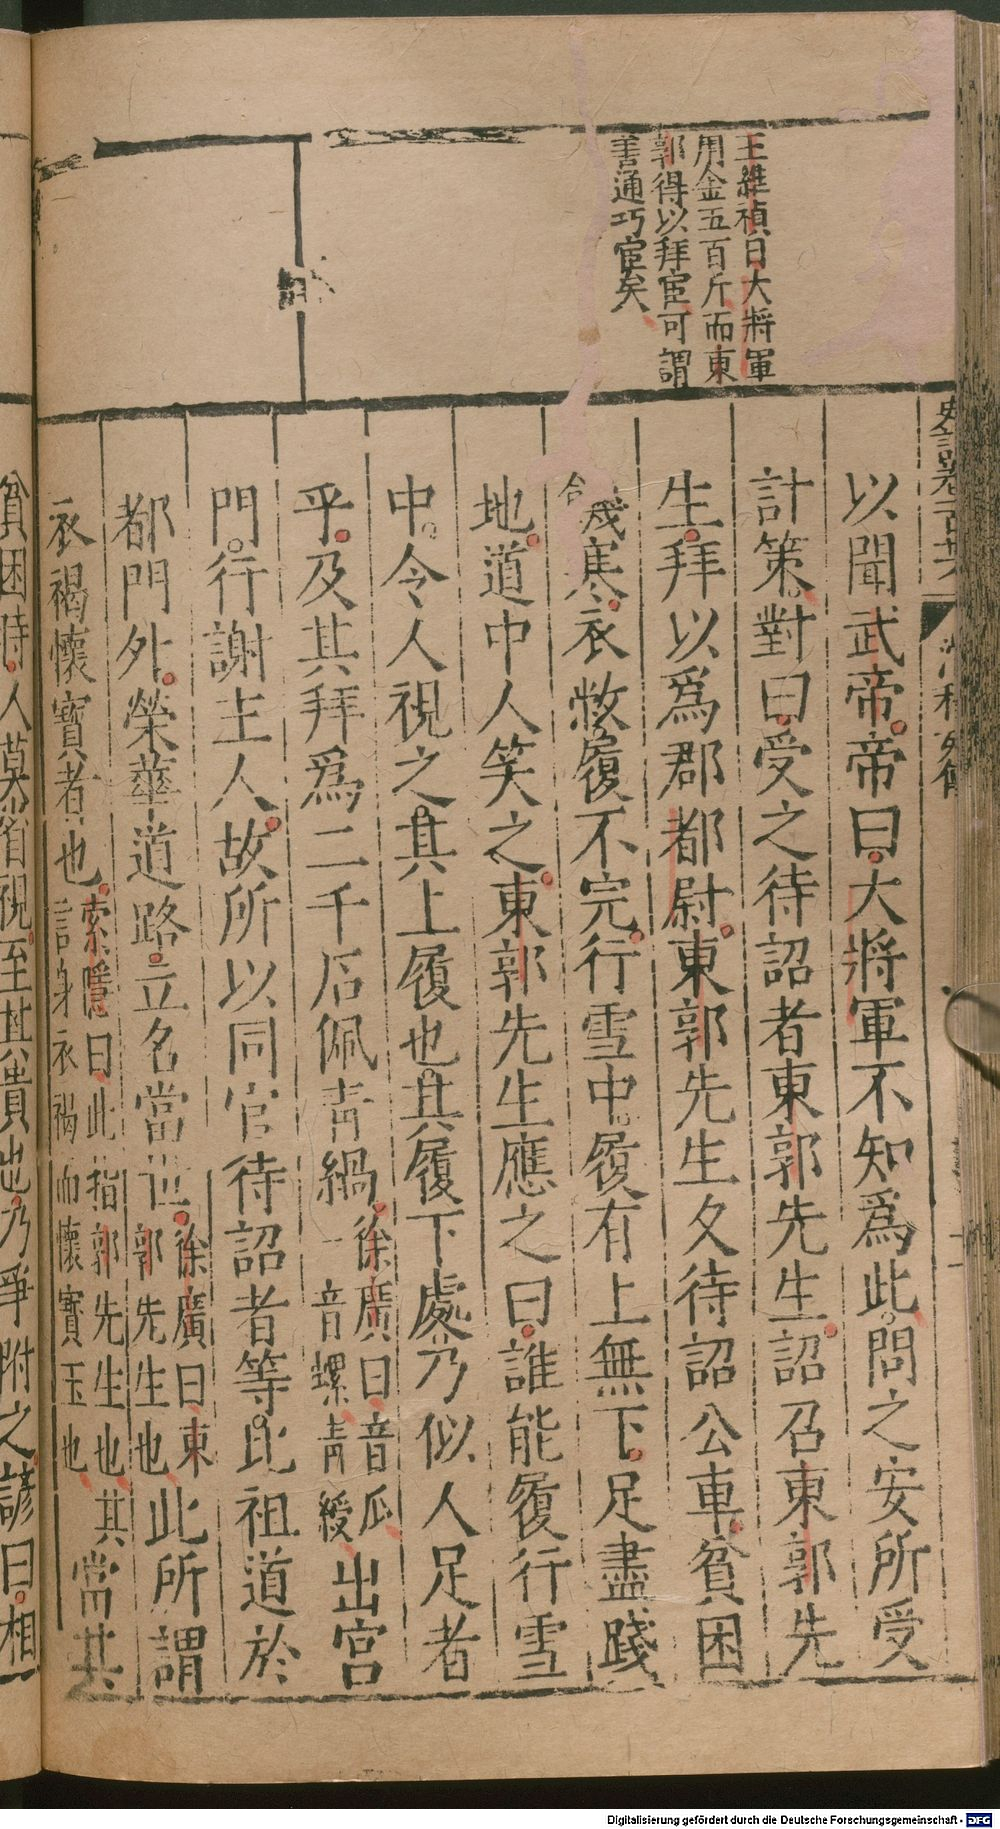 王維禎曰大將軍
用金五百斤而東
郭得以拜宦可謂
善通巧宦矣
史記卷一百廿六
滑稽列傳
以聞武帝帝曰大將軍不知爲此問之安所受
計策對曰受之待詔者東郭先生詔召東郭先
生拜以爲郡都尉東郭先生久待詔公車貧困
饑寒衣敝履不完行雪中履有上無下足盡踐
地道中人笑之東郭先生應之曰誰能履行雪
中令人視之其上履也其履下處乃似人足者
乎及其拜爲二千石佩青緺徐廣曰音瓜一音螺青綬出宮
門行謝主人故所以同官待詔者等比祖道於
都門外榮華道路立名當世徐廣曰東郭先生也此所謂
衣褐懷寶者也索隱曰此指郭先生也言身衣褐而懷寶玉也其當其
貧困時人莫省視至其貴也乃爭附之諺曰相
Digitalisierung gefördert durch die Deutsche Forschungsgemeinschaft - DFG